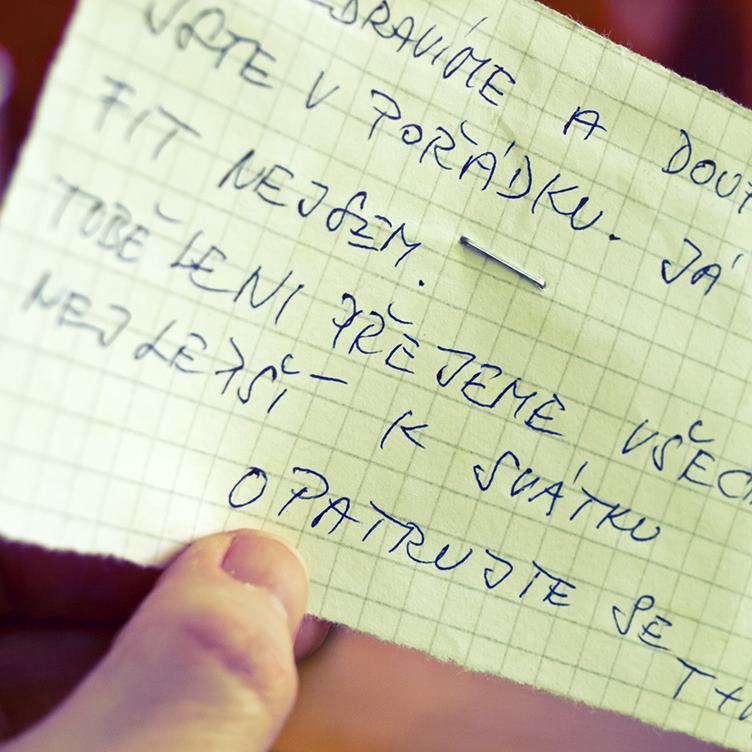 ZDRAVÍME A DOUF
JSTE V POŘÁDKU. JÁ
FIT NEJSEM.
TOBĚ LENI PŘEJEME VŠEC
NEJLEPŠÍ – K SVÁTKU
OPATRUJTE SE
T+